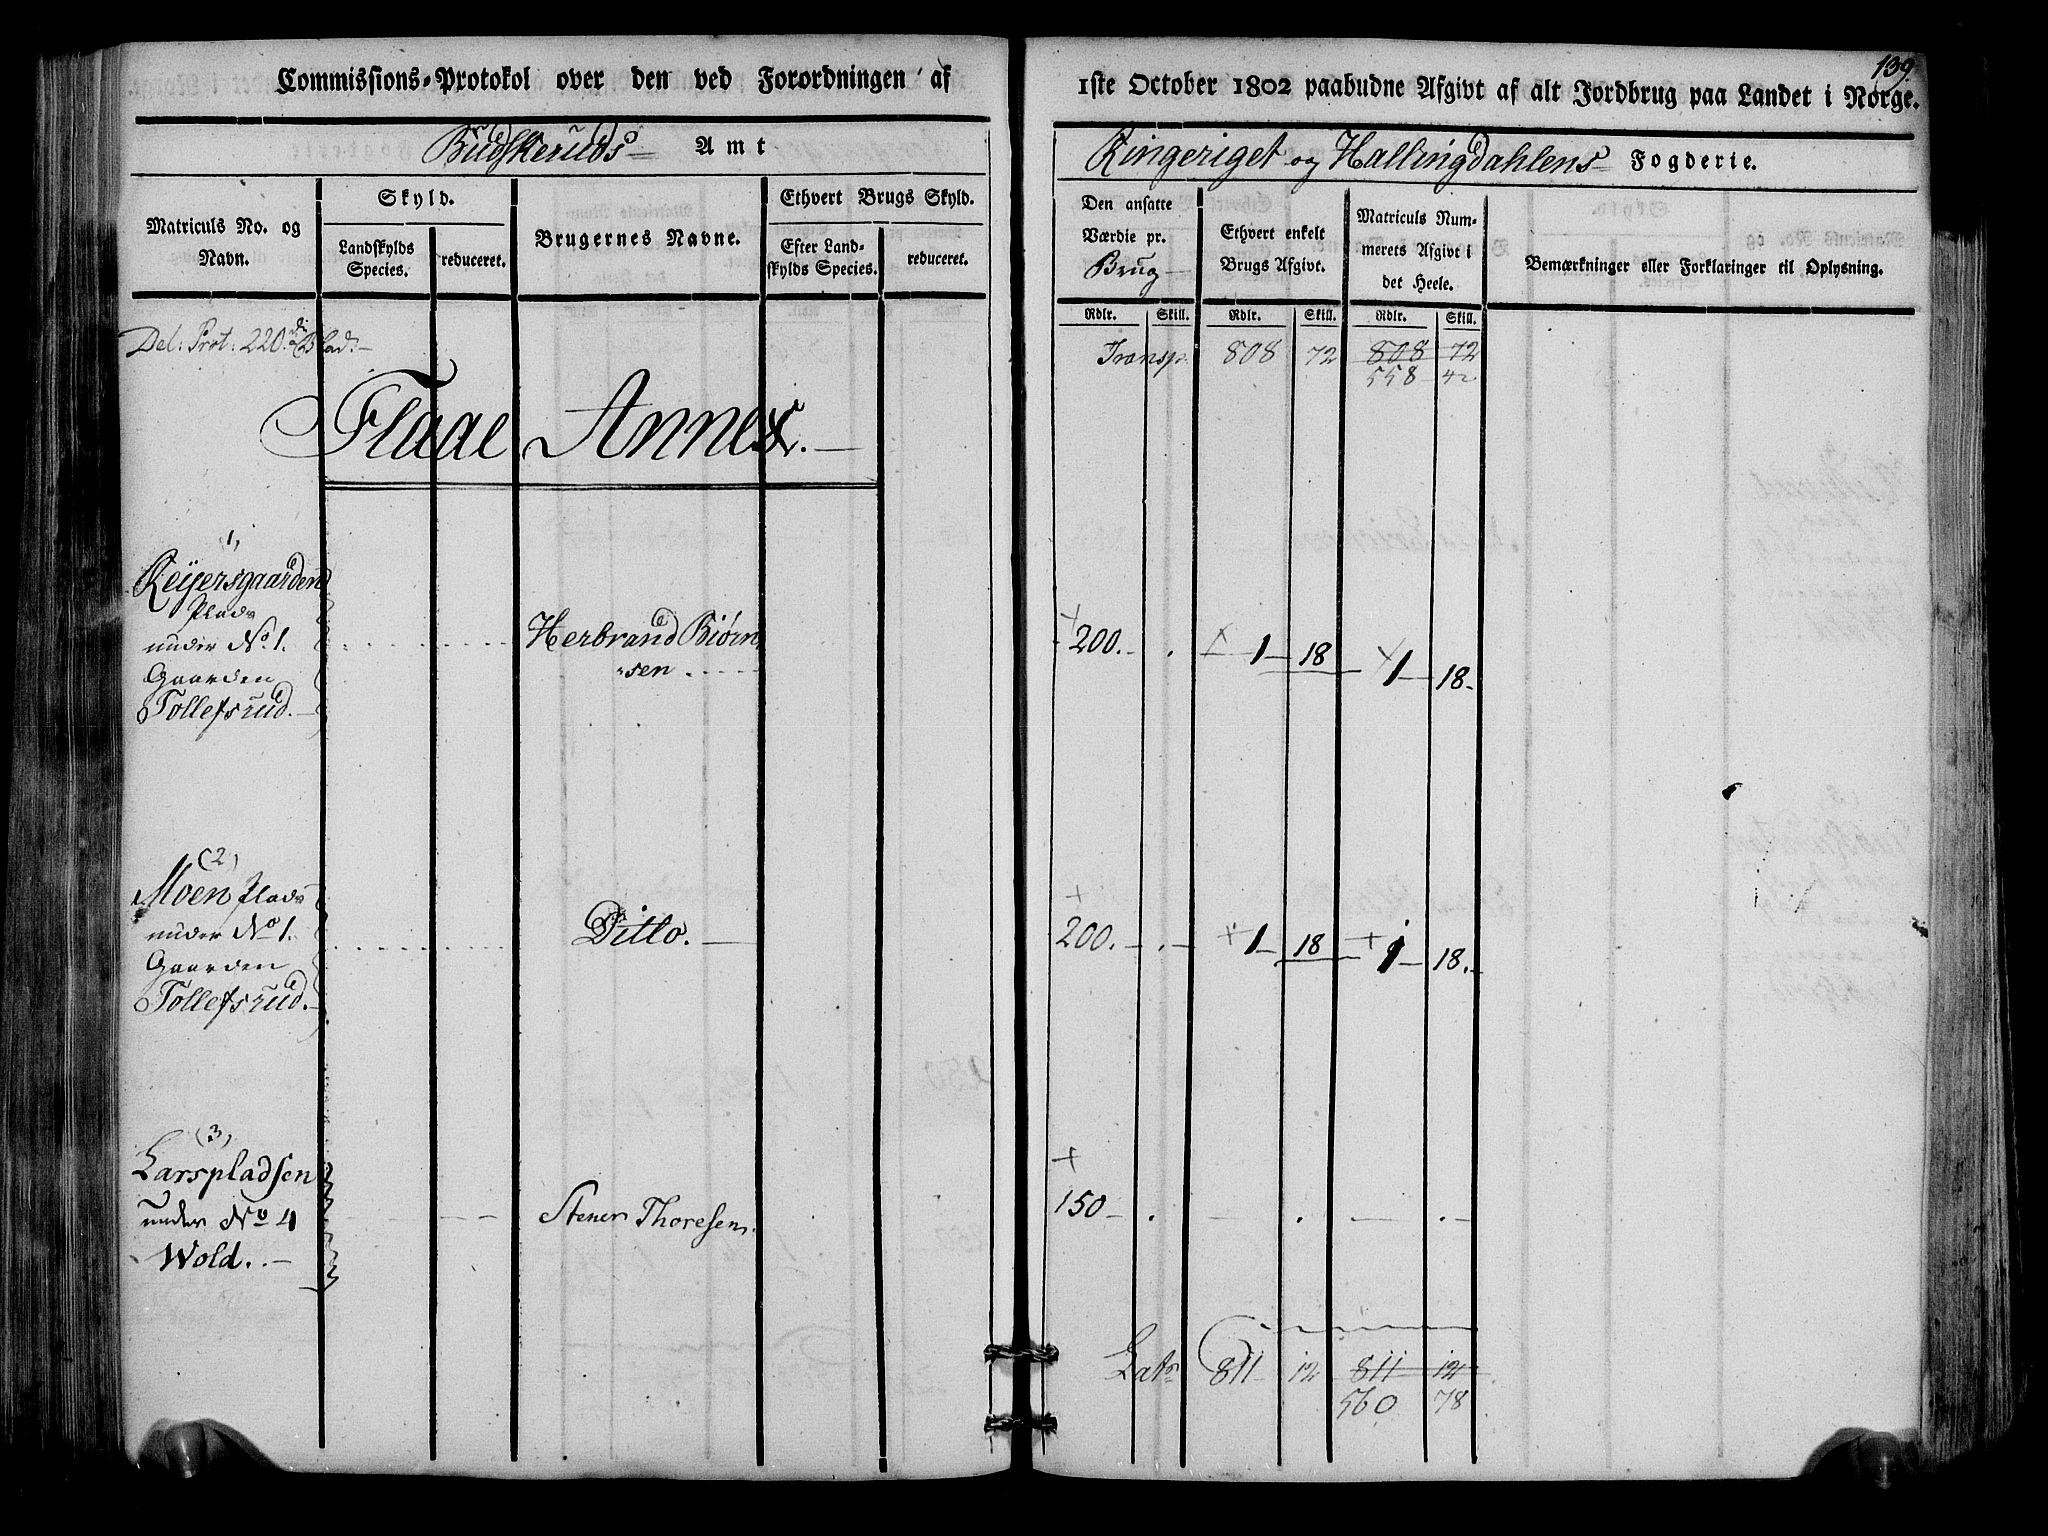 Commissions-Protokol over den ved Forordningen af
Budskeruds Amt
Matriculs No. og Navn.
Skyld.
Landskylds Species.
reduceret.
Brugernes Navne.
Ethvert Brugs Skyld.
Efter Landskylds Species.
reduceret.
Del: Prot: 220de Blad.
Flaae Annex.
1)
Reijersgaarden
Plads
under No 1.
Gaarden
Tollefsrud.
Herbrand Biørn
sen
(2)
Moen Plads
under No 1.
Gaarden
Tollefsrud.
Ditto.
(3)
Larspladsen
under No 4
Wold.
Stener Thoresen.
139.
1ste October 1802 paabudne Afgivt af alt Jordbrug paa Landet i Norge.
Ringeriget og Hallingdahlens Fogderie.
Den ansatte Værdie pr. Brug
Ethvert enkelt Brugs Afgivt.
Matriculs Nummerets Afgivt i det Heele.
Bemærkninger eller Forklaringer til Oplysning.
Rdlr. Skill. Rdlr. Skill. Rdlr. Skill.
Transp. 808 72 808 72
558 42
+ 200. . + 1 18 + 1 18.
+ 200. . + 1 18 + 1 18.
+ 150 . . .
Lats 811 12 811 12
560 78